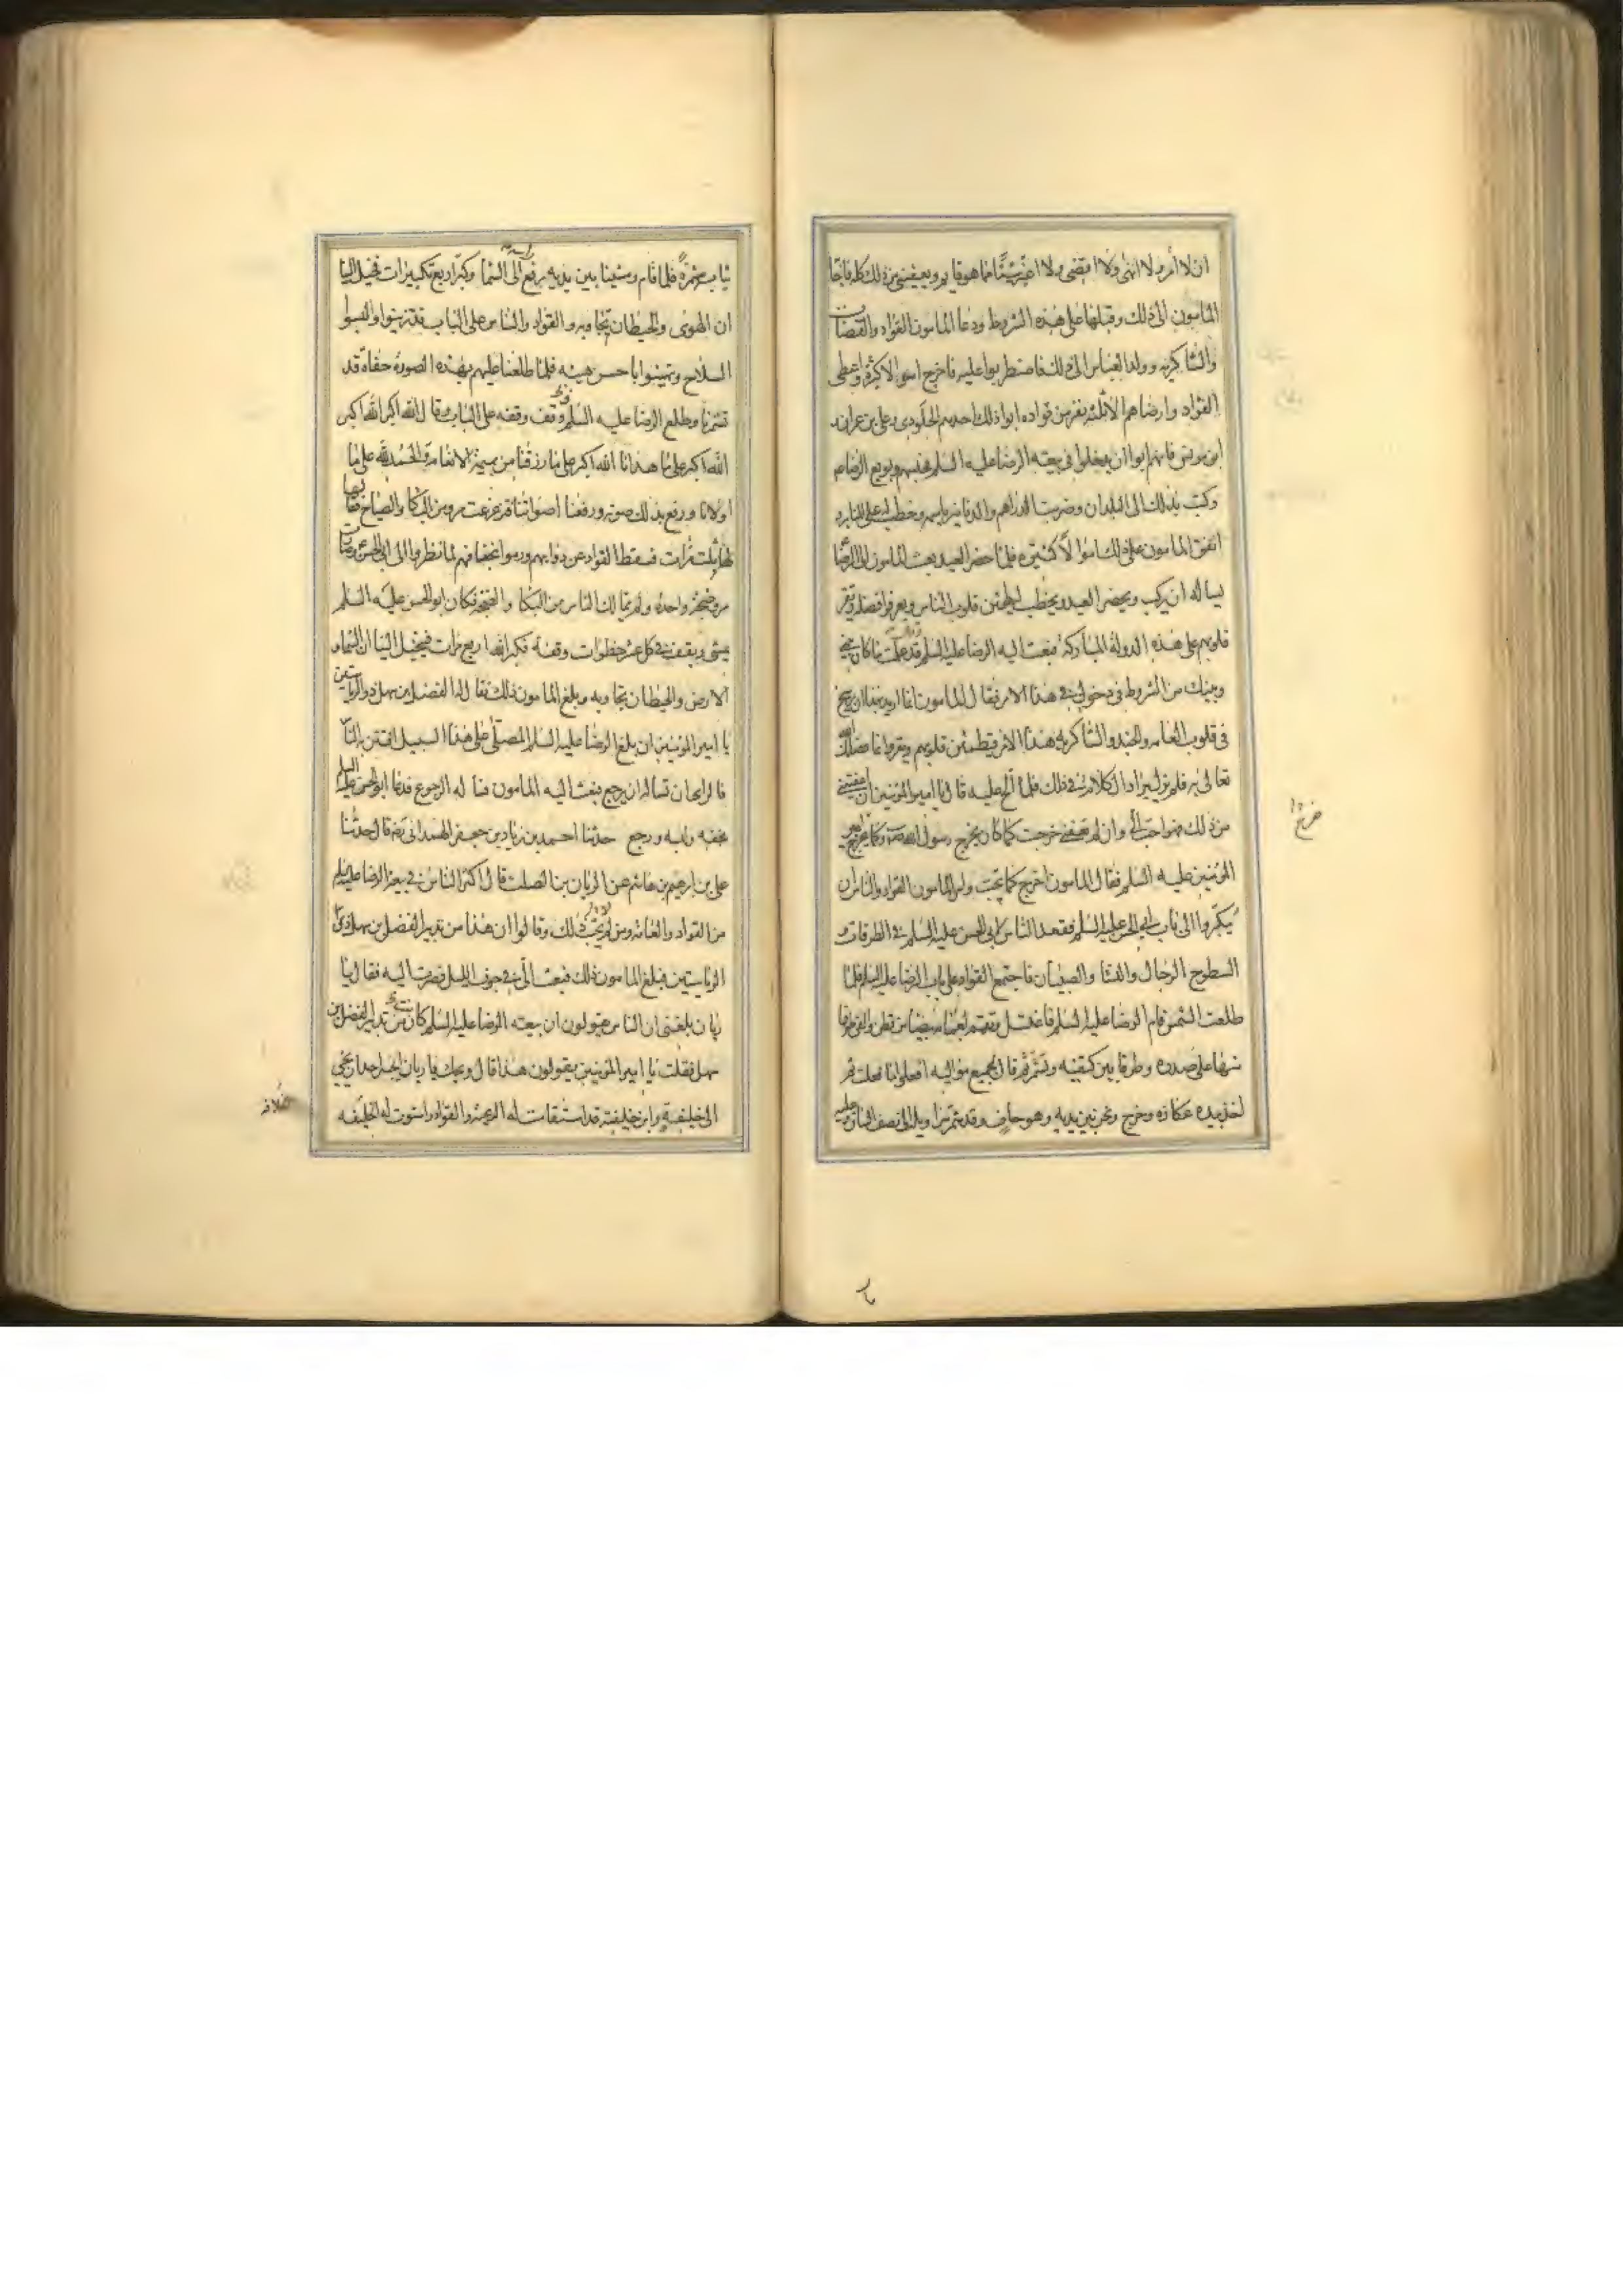 ان لا آمر ولا انهى ولا اقضى ولا اغير شيئا مما هو قايم ويعفينى من ذلك كله فاجا
المامون الى ذلك وقبلها على هذه الشروط ودعا المامون القواد والقضات
والشاكريه وولد العباس الى ذلك فاضطربوا عليه فاخرج اموالا كثيرة واعطى
القواد وارضاهم الا ثلثه نفر من قواده ابوا ذلك احدهم الجلودى وعلى بن عمران و
ابن مويس فانهم ابوا ان يدخلوا فى بيعته الرضا عليه السلم فحبسهم وبويع الرضا عم
وكتب بذلك الى البلدان وضربت الدراهم والدنانير باسمه وخطب له على المنابر و
انفق المامون على ذلك اموالا كثيره فلما حضر العيد بعث المامون الى الرضا
يساله ان يركب ويحضر العيد ويخطب ليطمئن قلوب الناس ويعرفوا فضله وتقر
قلوبهم على هذه الدولة المباركة فبعث اليه الرضا عليه السلم قد علمت ما كان بينى
وبينك من الشروط فى دخولى فى هذا الامر فقال المامون انما اريد بهذا ان يرسخ
فى قلوب العامه والجند والشاكريه هذا الامر فيطمئن قلوبهم ويقروا بما فضلك الله
تعالى به فلم يزل يراد الكلام فى ذلك فلما الح عليه قال يا امير المؤمنين ان اعفيتنى
من ذلك فهو احب الى وان لم تعفنى خرجت كما كان يخرج رسول الله ص وكما خرج امير
المؤمنين عليه السلم فقال المامون اخرج كما تحب وامر المامون القواد والناس ان
يبكروا الى باب ابى الحسن عليه السلم فقعد الناس لابى الحسن عليه السلم فى الطرقات و
السطوح الرجال والنسا والصبيان فاجتمع القواد على باب الرضا عليه السلم فلما
طلعت الشمس قام الرضا عليه السلم فاغتسل وتعمم بعمامة بيضا من قطن والقى طرفا
منها على صدره وطرفا بين كتفيه وتشمر ثم قال لجميع مواليه افعلوا ما فعلت ثم
اخذ بيده عكازه وخرج ونحن بين يديه وهو حاف وقد شمر سراويله الى نصف الساق وعليه
خرج
ثياب مشمرة فلما قام ومشينا بين يديه رفع راسه الى السما وكبر اربع تكبيرات فخيل الينا
ان الهوى والحيطان تجاوبه والقواد والناس على الباب قد تزينوا ولبسوا
السلاح وتهيئوا باحسن هيئه فلما طلعنا عليهم بهذه الصورة حفاة قد
تشمرنا وطلع الرضا عليه السلم وقف وقفه على الباب وقال الله اكبر الله اكبر
الله اكبر على ما هدانا الله اكبر على ما رزقنا من بهيمة الانعام والحمد لله على ما
اولانا ورفع بذلك صوته ورفعنا اصواتنا فتزعزعت مرو من البكا والصياح فقالها
ثلث مرات فسقط القواد عن دوابهم ورموا بخفافهم لما نظروا الى ابى الحسن وصارت
مرو ضجة واحدة ولم يتمالك الناس من البكا والضجة فكان ابو الحسن عليه السلم
يمشى ويقف فى كل عشر خطوات وقفه فكبر الله اربع مرات فيخيل الينا ان السماء و
الارض والحيطان تجاوبه وبلغ المامون ذلك فقال له الفضل بن سهل ذو الرياستين
يا امير المؤمنين ان بلغ الرضا عليه السلم المصلى على هذا السبيل افتتن به الناس
فالراى ان تساله ان يرجع فبعث اليه المامون فساله الرجوع فدعا ابو الحسن عليه السلم
بخفه ولبسه ورجع حدثنا احمد بن زياد بن جعفر الهمدانى رضه قال حدثنا
على بن ابرهيم بن هاشم عن الريان بن الصلت قال اكثر الناس فى بيعة الرضا عليه السلم
من القواد والعامه ومن لم يحب ذلك وقالوا ان هذا من تدبير الفضل بن سهل ذى
الرياستين فبلغ المامون ذلك فبعث الى فى جوف الليل فصرت اليه فقال يا
ريان بلغنى ان الناس يقولون ان بيعته الرضا عليه السلم كانت من تدبير الفضل بن
سهل فقلت يا امير المؤمنين يقولون هذا قال ويحك يا ريان ايجسر احد ان يجئ
الى خليفة وابن خليفته قد استقامت له الرعية والقواد واستوت له الخليفه